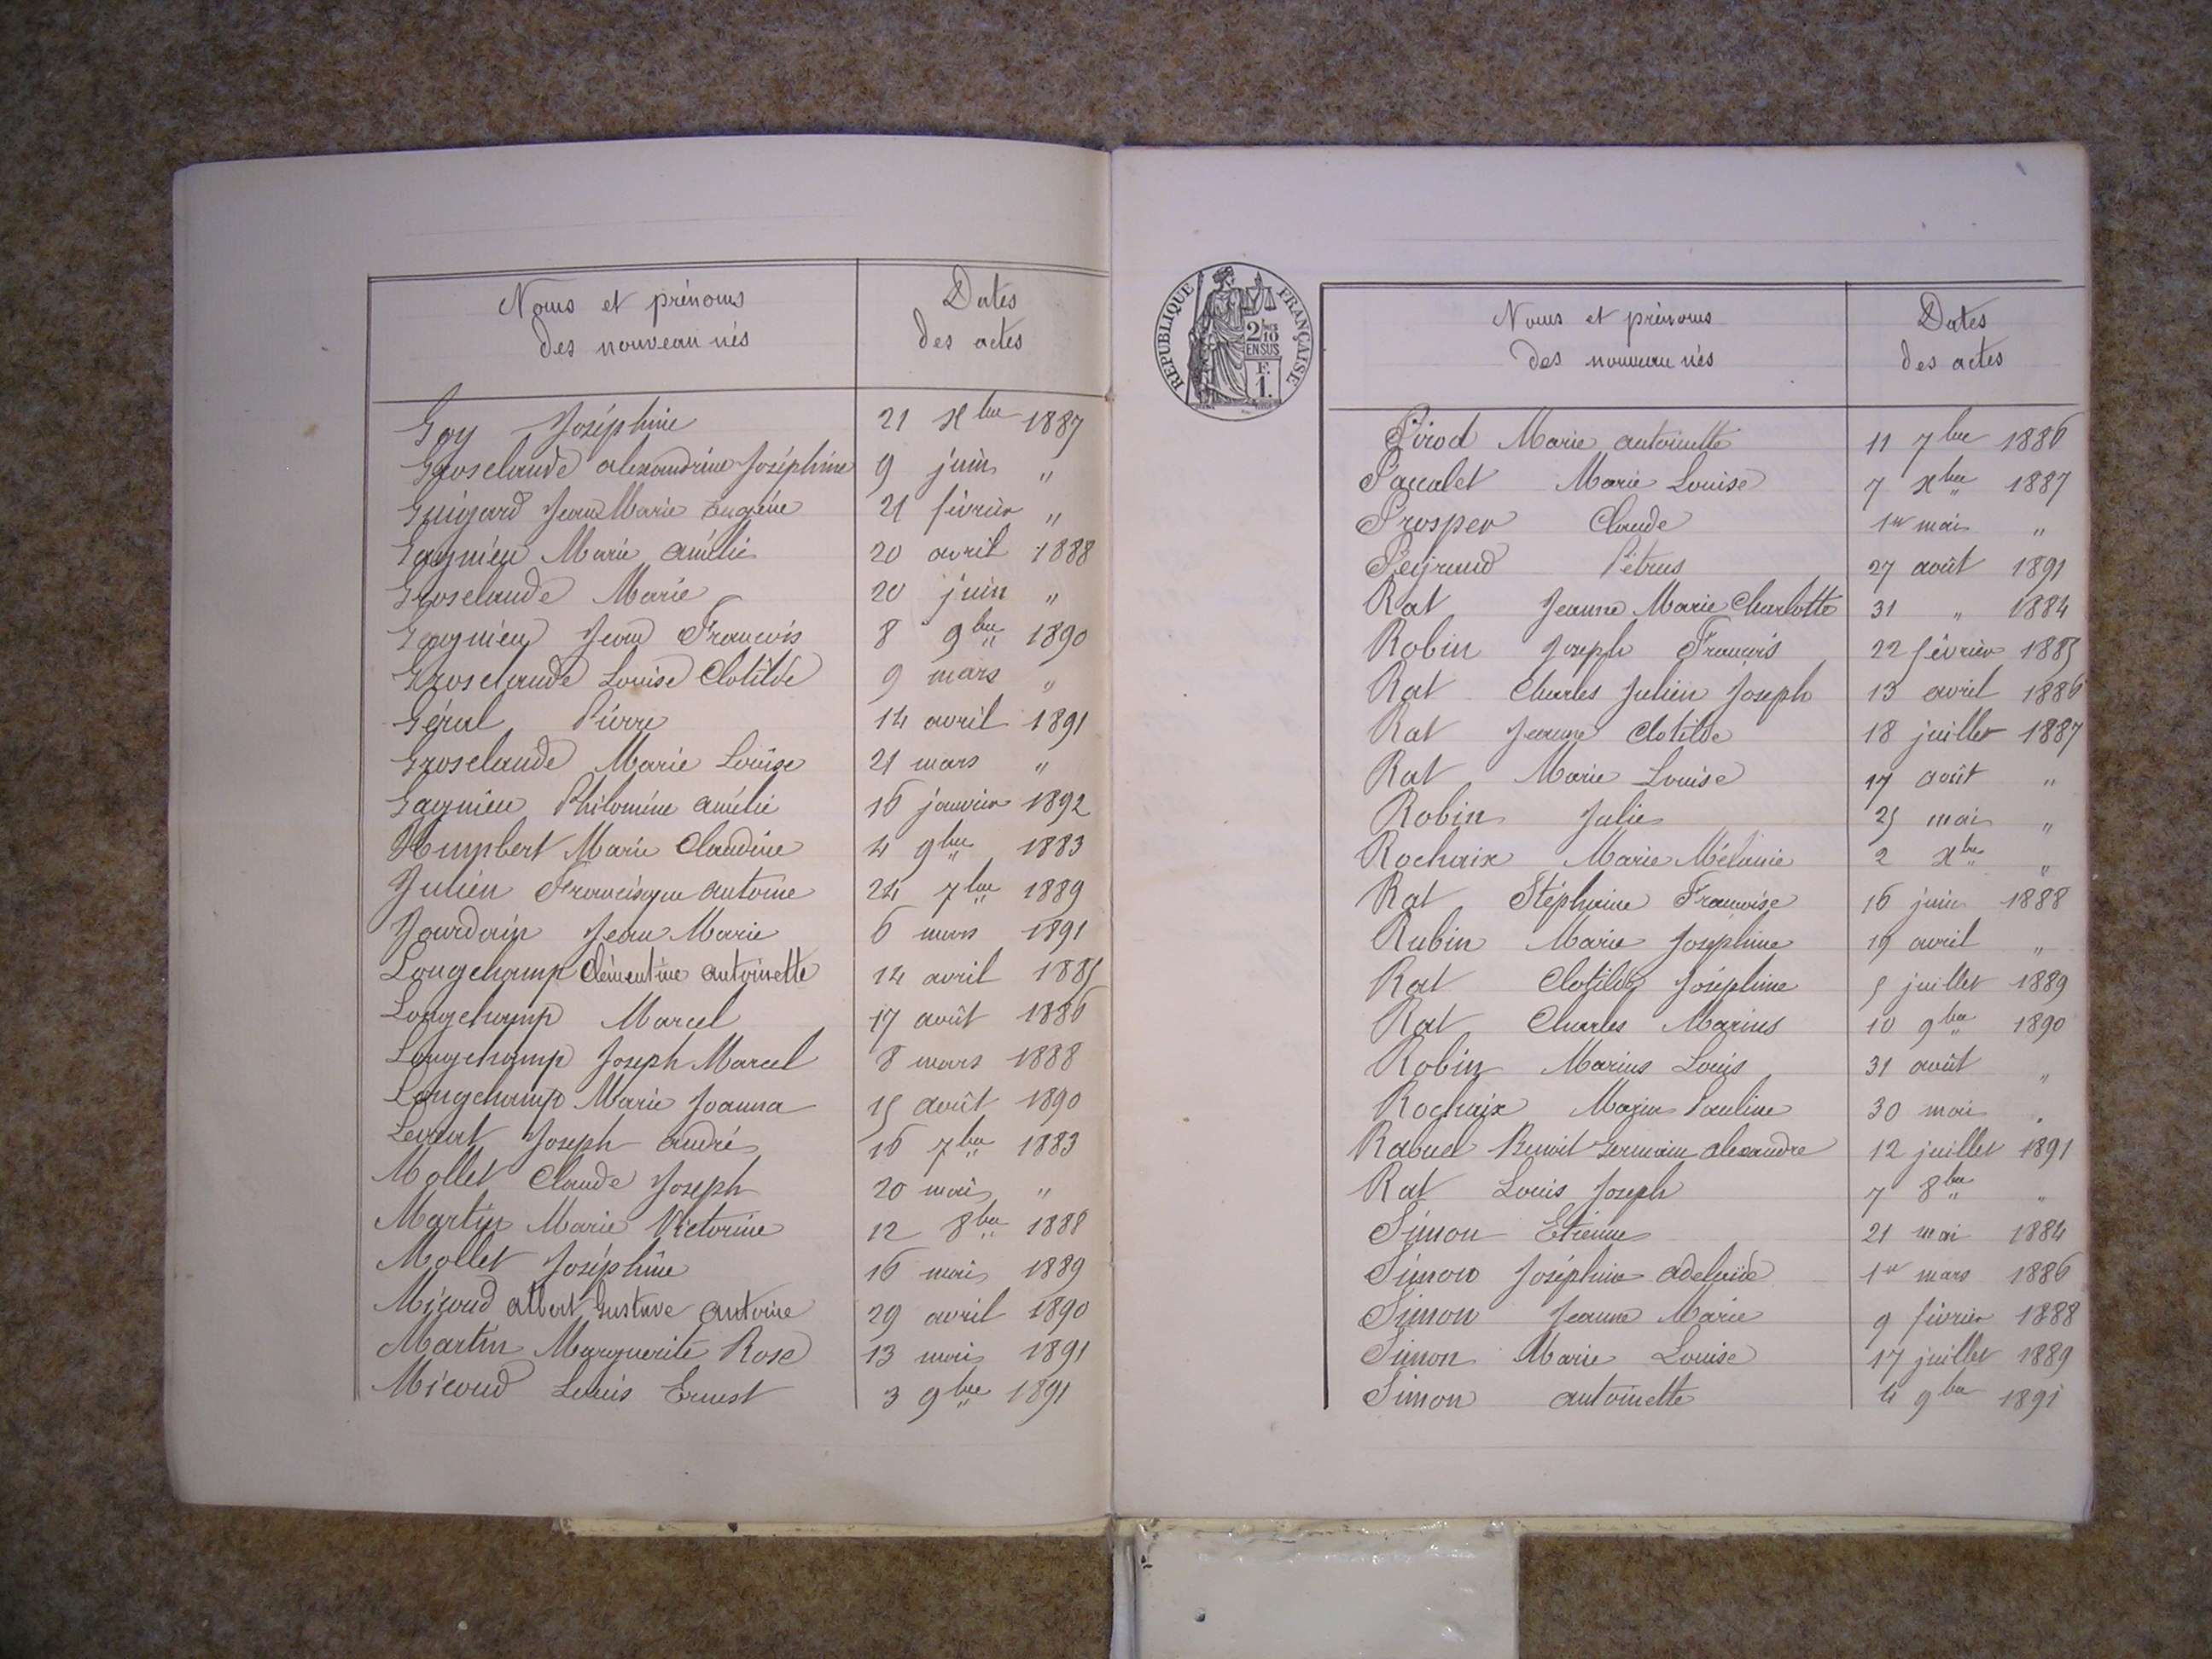 Noms et prénoms
des nouveau nés
Dates
des actes
Goy Joséphine 21 Xbre 1887
Groselaude alexandrine Joséphine 9 juin "
Guigard Jean Marie Eugène 21 février "
Gagnieu Marie Amélie 20 avril 1888
Groselaude Marie 20 juin "
Gagnieu Jean François 8 9bre 1890
Groselaude Louise Clotilde 9 mars "
Géral Pierre 14 avril 1891
Groselaude Marie Louise 21 mars "
Gagnieu Philomène amélie 16 janvier 1892
Humbert Marie Claudine 4 9bre 1883
Julien Francisque antoine 24 7bre 1889
Jourdain Jean Marie 6 mars 1891
Longchamp Clémentine antoinette 14 avril 1885
Longchamp Marcel 17 août 1886
Longchamp Joseph Marcel 8 mars 1888
Longchamp Marie Joanna 15 août 1890
Levent Joseph andré 16 7bre 1883
Mollet Claude Joseph 20 mai "
Martin Marie Victorine 12 8bre 1888
Mollet Joséphine 16 mai 1889
Micoud albert Gustave antoine 29 avril 1890
Martin Marguerite Rose 13 mai 1891
Micoud Louis Ernest 3 9bre 1891
RÉPUBLIQUE FRANÇAISE
2/10
EN SUS
F.
1.
Noms et prénoms
des nouveau nés
Dates
des actes
Pirod Marie antoinette 11 7bre 1886
Paccalet Marie Louise 7 Xbre 1887
Prosper Claude 1er mai "
Peyraud Pétrus 27 août 1891
Rat Jeanne Marie Charlotte 31 " 1884
Robin Joseph François 22 février 1885
Rat Charles Julien Joseph 13 avril 1886
Rat Jeanne Clotilde 18 juillet 1887
Rat Marie Louise 17 août "
Robin Julie 25 mai "
Rochaix Marie Mélanie 2 Xbre "
Rat Stéphanie Françoise 16 juin 1888
Rubin Marie Joséphine 19 avril "
Rat Clotilde Joséphine 5 juillet 1889
Rat Charles Marius 10 9bre 1890
Robin Marius Louis 31 août "
Rochaix Pauline 30 mai "
Rabuel Benoit Germain alexandre 12 juillet 1891
Rat Louis Joseph 7 8bre "
Simon Etienne 21 mai 1884
Simon Joséphine adelaïde 1er mars 1886
Simon Jeanne Marie 9 février 1888
Simon Marie Louise 17 juillet 1889
Simon antoinette 4 9bre 1891